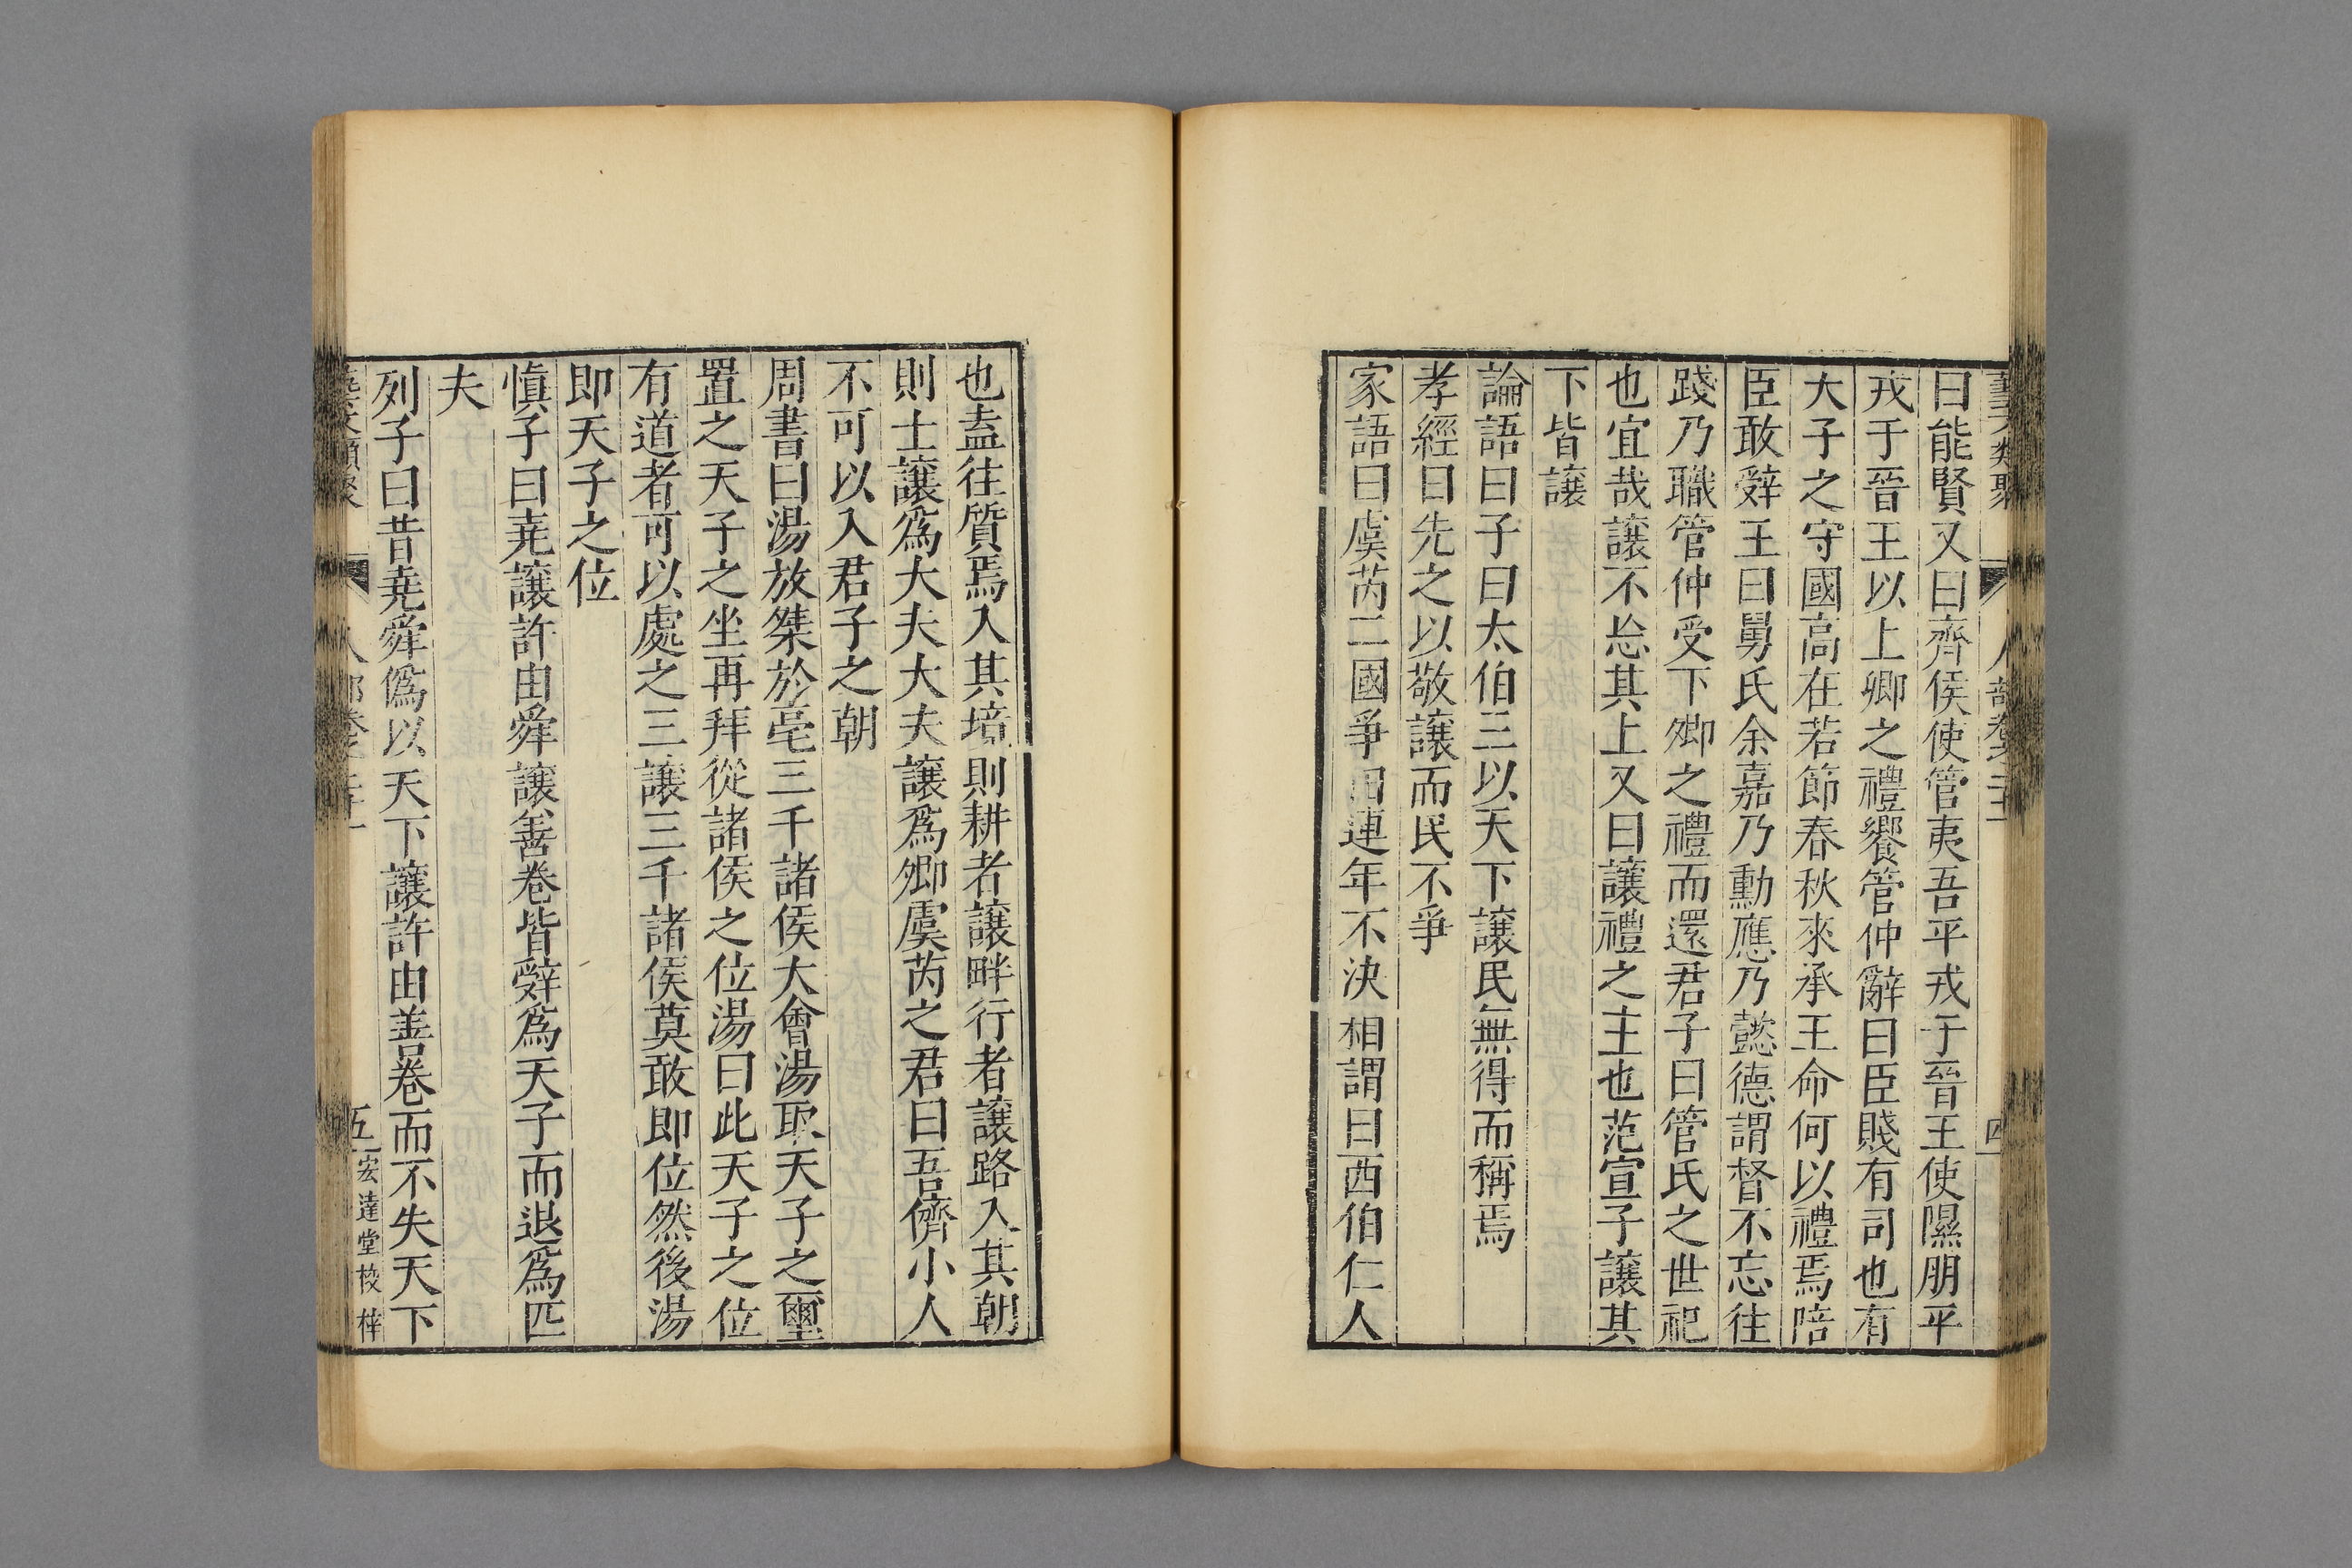 曰能賢又曰齊侯使管夷吾平戎于晉王使隰朋平
戎于晉王以上卿之禮饗管仲辭曰臣賤有司也有
大子之守國高在若節春秋來承王命何以禮焉陪
臣敢辤王曰舅氏余嘉乃勳應乃懿德謂督不忘往
踐乃職管仲受下卿之禮而還君子曰管氏之世祀
也宜哉讓不忘其上又曰讓禮之主也范宣子讓其
下皆讓
論語曰子曰太伯三以天下讓民無得而稱焉
孝經曰先之以敬讓而民不爭
家語曰虞芮二國爭田連年不決相謂曰西伯仁人
也盍往質焉入其境則耕者讓畔行者讓路入其朝
則士讓爲大夫大夫讓爲卿虞芮之君曰吾儕小人
不可以入君子之朝
周書曰湯放桀於亳三千諸侯大會湯取天子之璽
置之天子之坐再拜從諸侯之位湯曰此天子之位
有道者可以處之三讓三千諸侯莫敢即位然後湯
即天子之位
愼子曰堯讓許由舜讓善卷皆辤爲天子而退爲匹
夫
列子曰昔堯舜僞以天下讓許由善卷而不失天下
五
宏達堂校梓